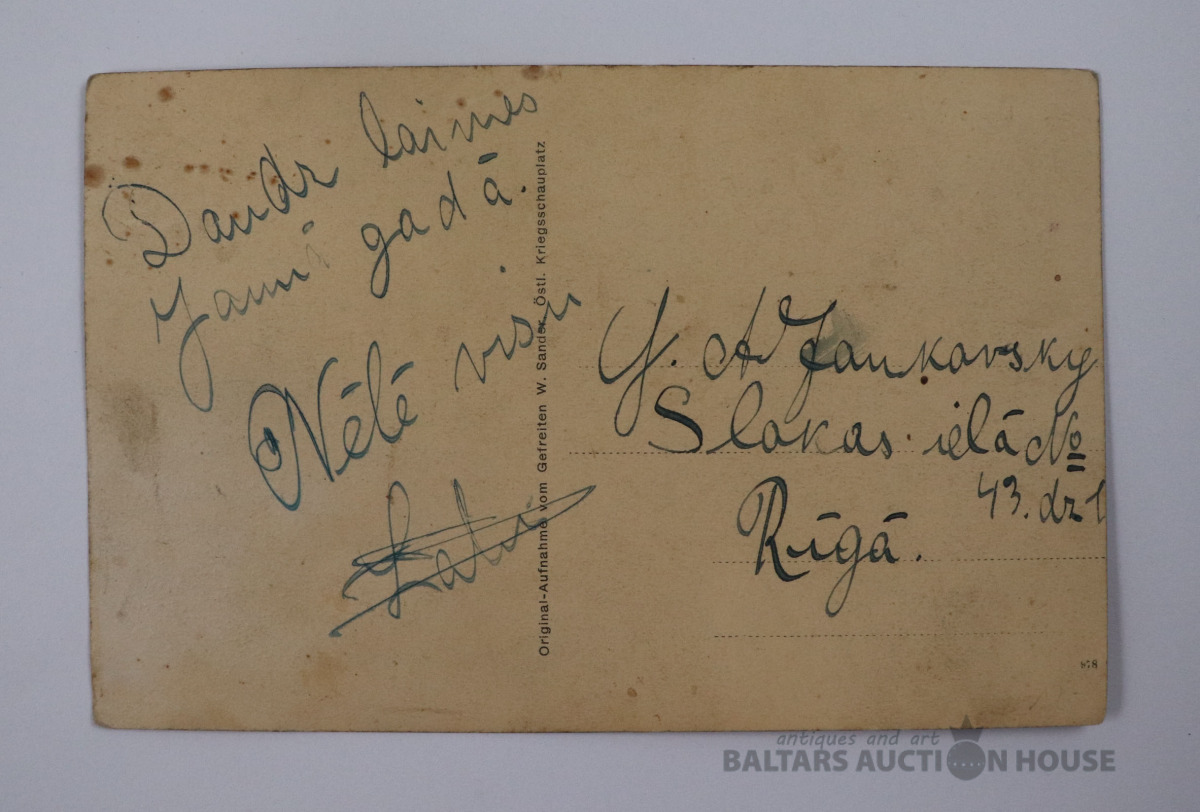 Daudz laimes
Jaunā gadā.
Vēlē visu
Original-Aufnahme vom Gefreiten W. Sander, Östl. Kriegsschauplatz
A Jankovsky
Slokas ielā №
43. dz 1
Rīgā.
878
antiques and art
BALTARS AUCTION HOUSE